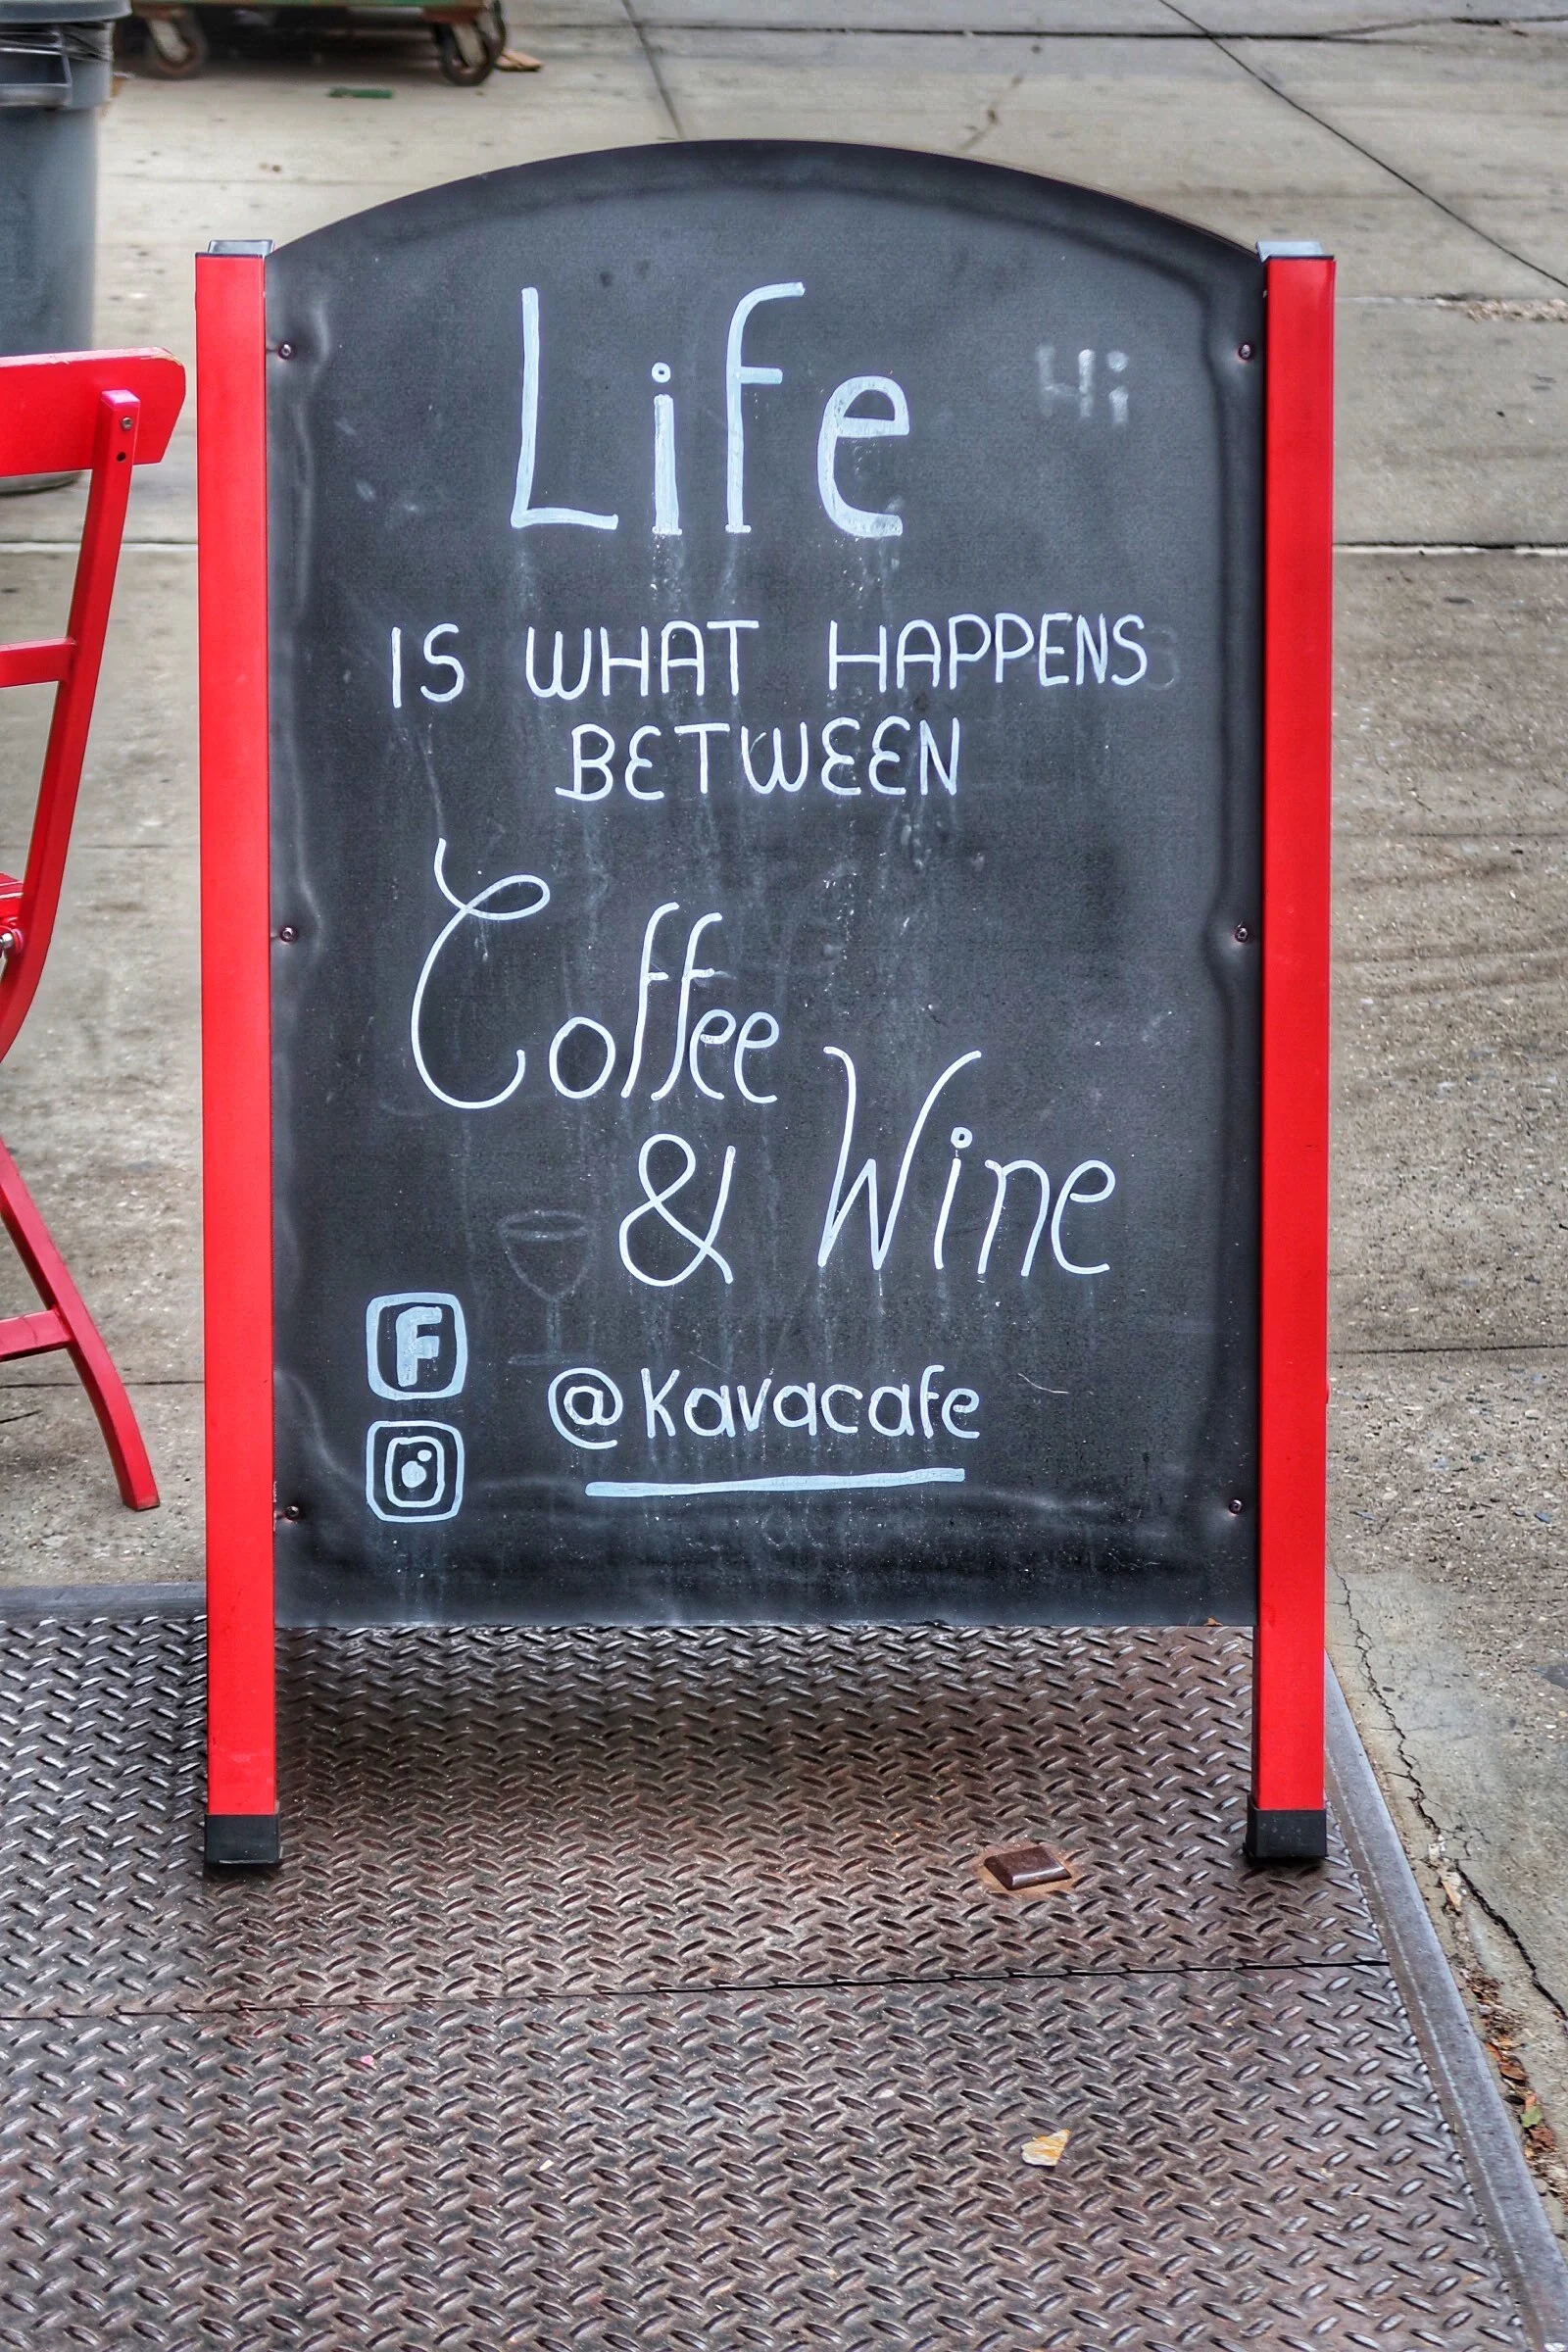 Life
Hi
IS WHAT HAPPENS
BETWEEN
Coffee
& Wine
F
@Kavacafe